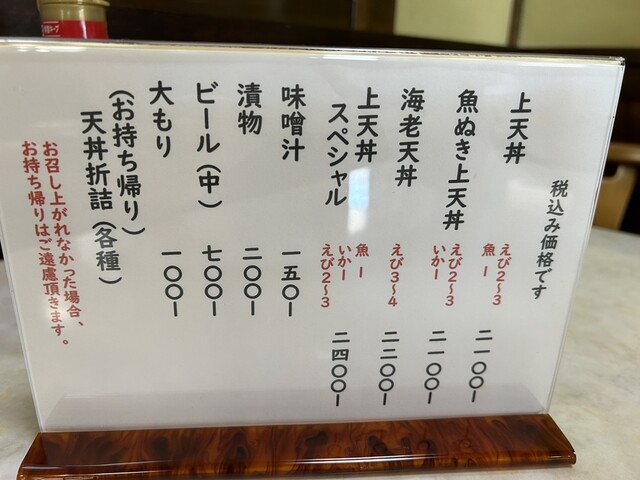 税込み価格です
上天丼 えび2〜3 魚一 二一〇〇ー
魚ぬき上天丼 えび2〜3 いか一 二一〇〇ー
海老天丼 えび3〜4 二二〇〇ー
上天丼
スペシャル 魚一 いか一 えび2〜3 二四〇〇ー
味噌汁 一五〇ー
漬物 二〇〇ー
ビール(中) 七〇〇ー
大もり 一〇〇ー
(お持ち帰り)
天丼折詰(各種)
お召し上がれなかった場合、
お持ち帰りはご遠慮頂きます。